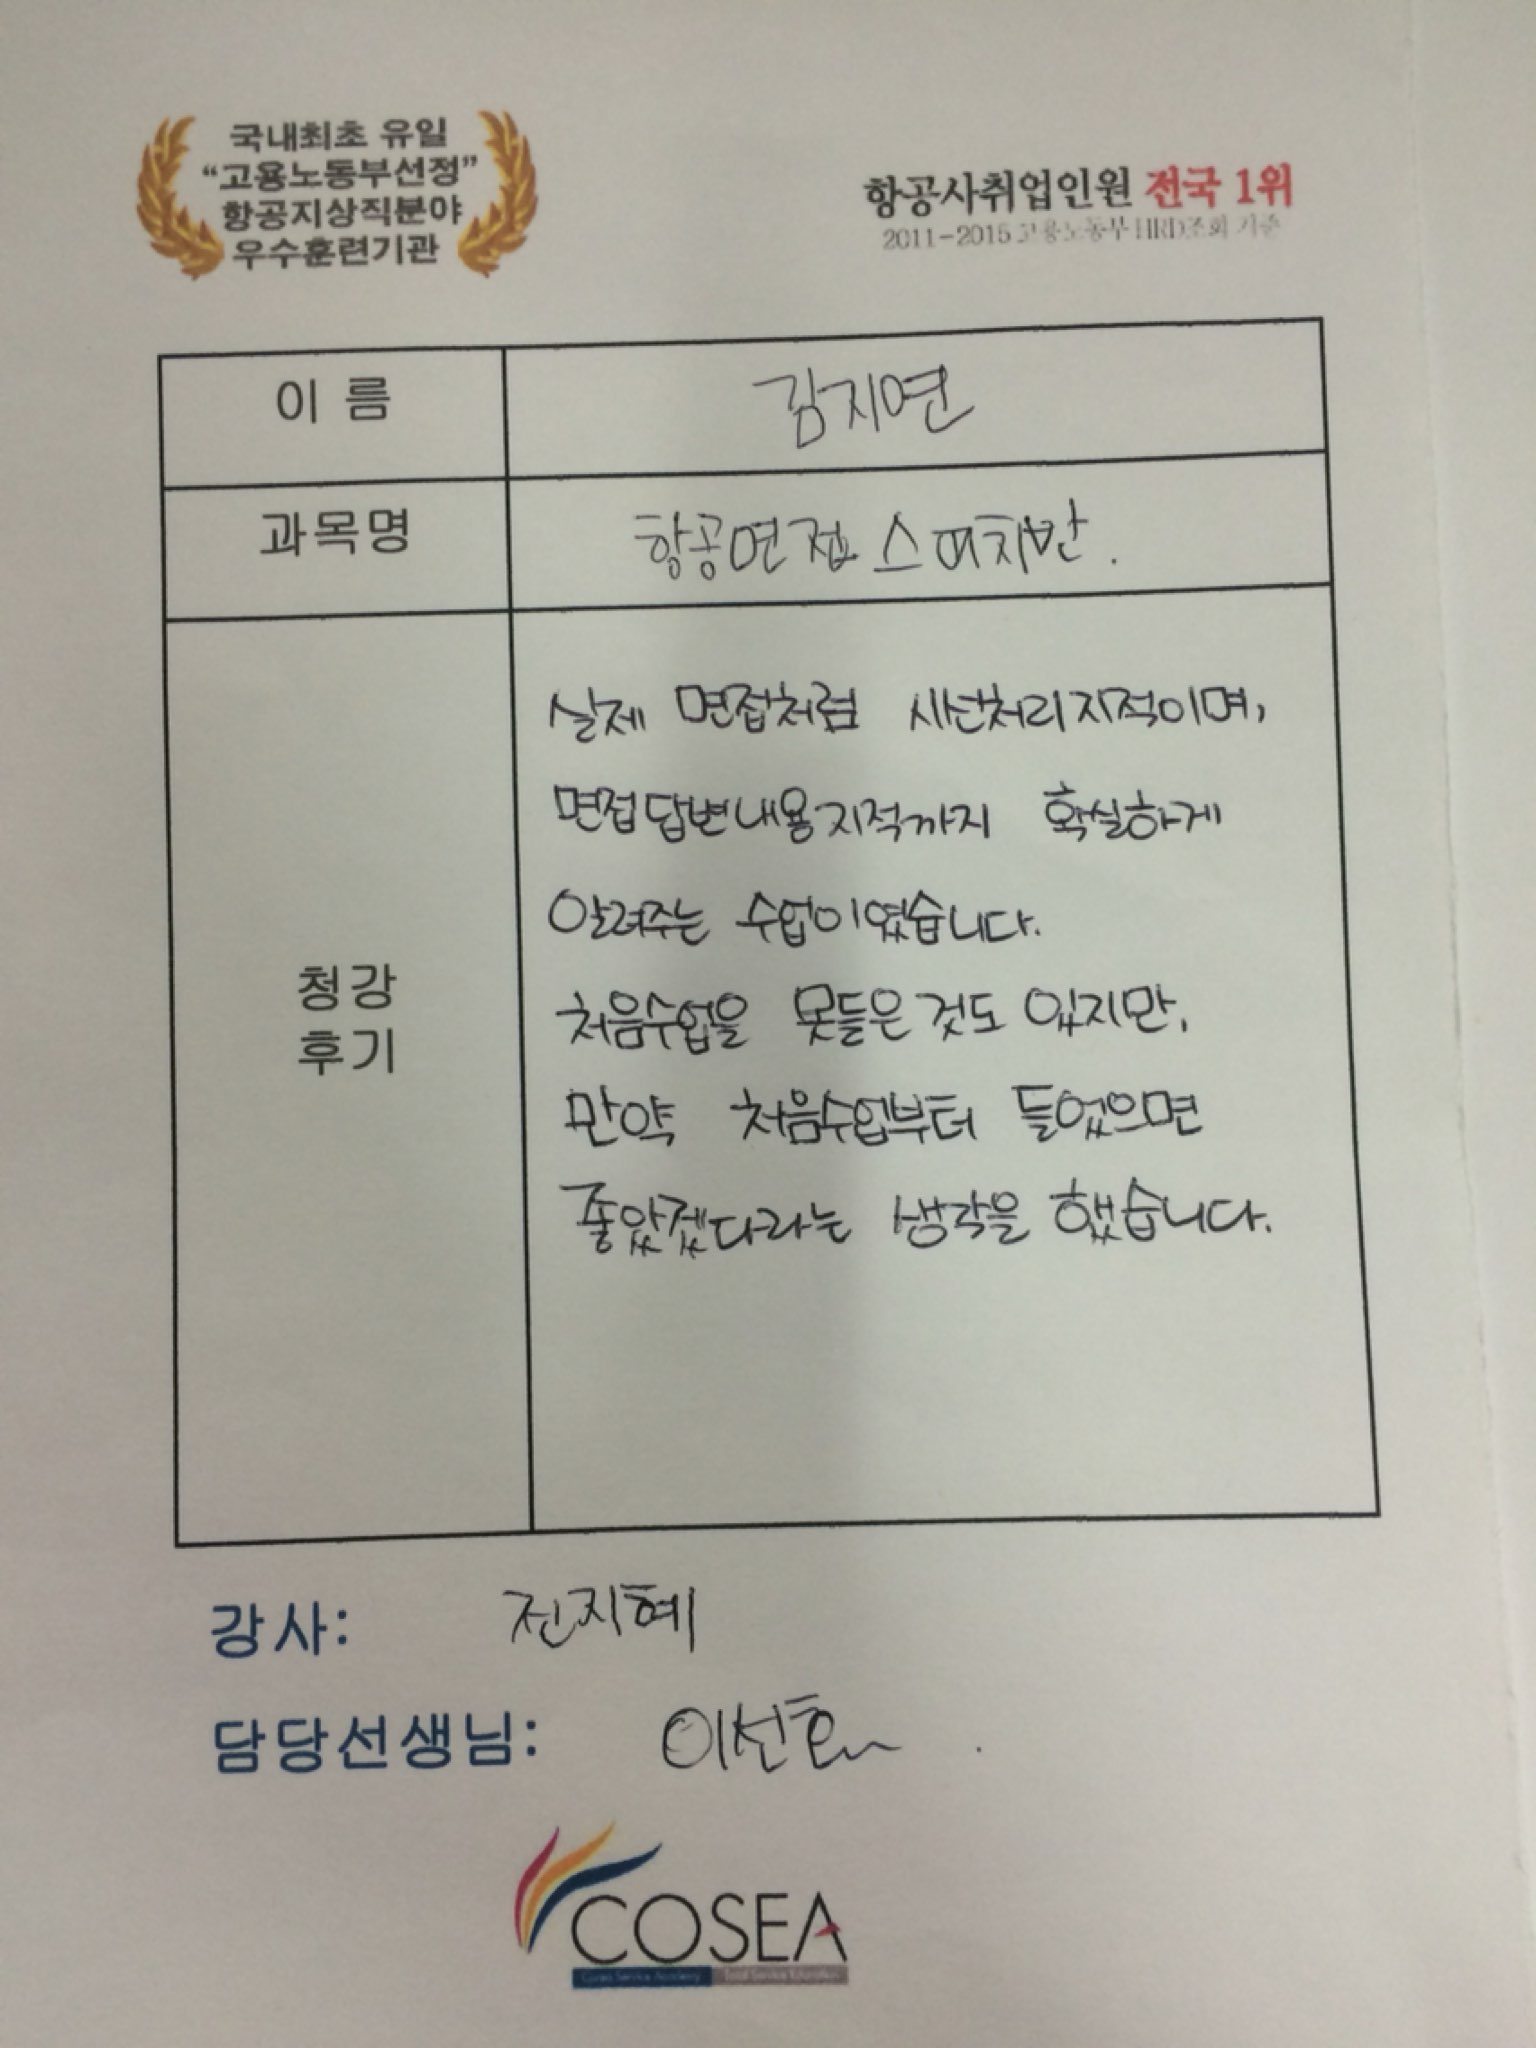 국내최초 유일
“고용노동부선정”
항공지상직분야
우수훈련기관
항공사취업인원 전국 1위
2011-2015 고용노동부 HRD조회 기준
이 름
김지연
과목명
항공면접 스피치반.
실제 면접처럼 시선처리지적이며,
면접답변내용지적까지 확실하게
알려주는 수업이였습니다.
처음수업을 못들은것도 있지만,
만약 처음수업부터 들었으면
좋았겠다라는 생각을 했습니다.
청강
후기
강사: 진지혜
담당선생님: 이선호
COSEA
Corea Service Academy Total Service Education